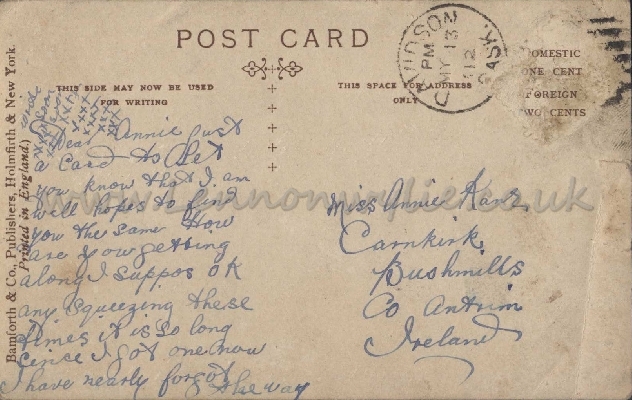 POST CARD
THIS SIDE MAY NOW BE USED
FOR WRITING
THIS SPACE FOR ADDRESS
ONLY
DOMESTIC
ONE CENT
FOREIGN
TWO CENTS
DAVIDSON
PM
MY 13
12
SASK.
Bamforth & Co., Publishers, Holmfirth & New York.
Printed in England.)
Dear Annie Just
a Card to Let
you know that I am
well hopes to find
you the same How
are you getting
along I suppos OK
any squeezing these
times it is so long
cince I got one now
I have nearly forgot the way
xxx
xxx
xxx
Miss Annie
Carnkirk
Bushmills
Co Antrim
Ireland